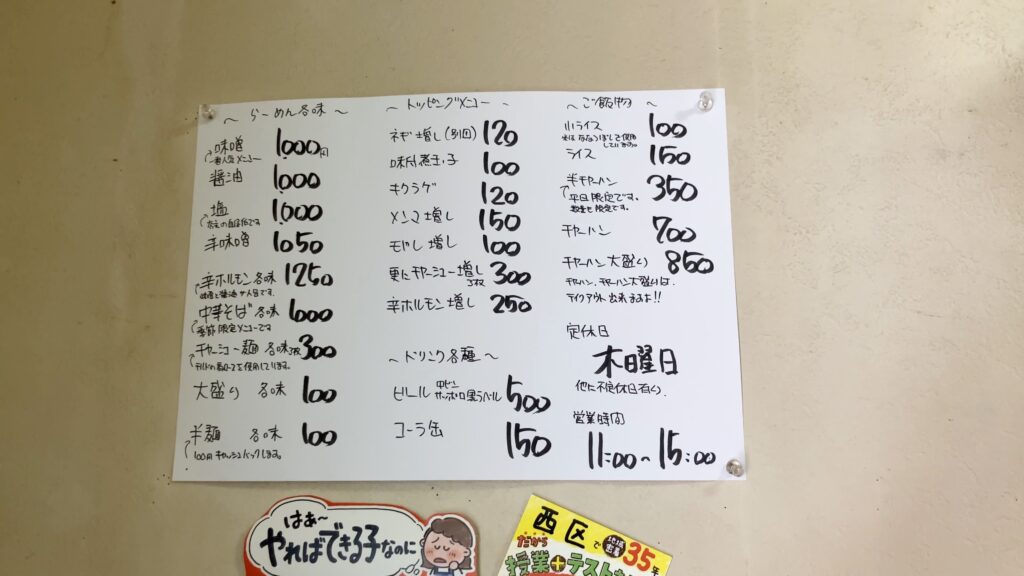 ～ らーめん各味 ～
味噌 1,000円
一番人気メニュー
醤油 1,000
塩 1,000
辛味噌 1050
辛ホルモン 各味 1250
味噌と醤油が人気です。
中華そば 各味 1,000
季節限定メニューです
チャーシュー麺 各味 3枚 300
を使用しています。
大盛り 各味 100
半麺 各味 100
100円 キャッシュバックします。
～ トッピングメニュー ～
ネギ増し(別皿) 120
味付煮玉子 100
キクラゲ 120
メンマ増し 150
モヤシ増し 100
更にチャーシュー増し 3枚 300
辛ホルモン増し 250
～ ドリンク各種 ～
ビール 中ビン サッポロ黒ラベル 500
コーラ缶 150
～ ご飯物 ～
小ライス 100
米はななつぼしを使用しています。
ライス 150
半チャーハン 350
平日限定です。
数量も限定です。
チャーハン 700
チャーハン大盛り 850
チャーハン、チャーハン大盛りは、
テイクアウト出来ますよ!!
定休日
木曜日
他に不定休日有り
営業時間
11:00～15:00
はぁ～
やればできる子なのに
西区で 地域密着 35年
だから
授業+テスト